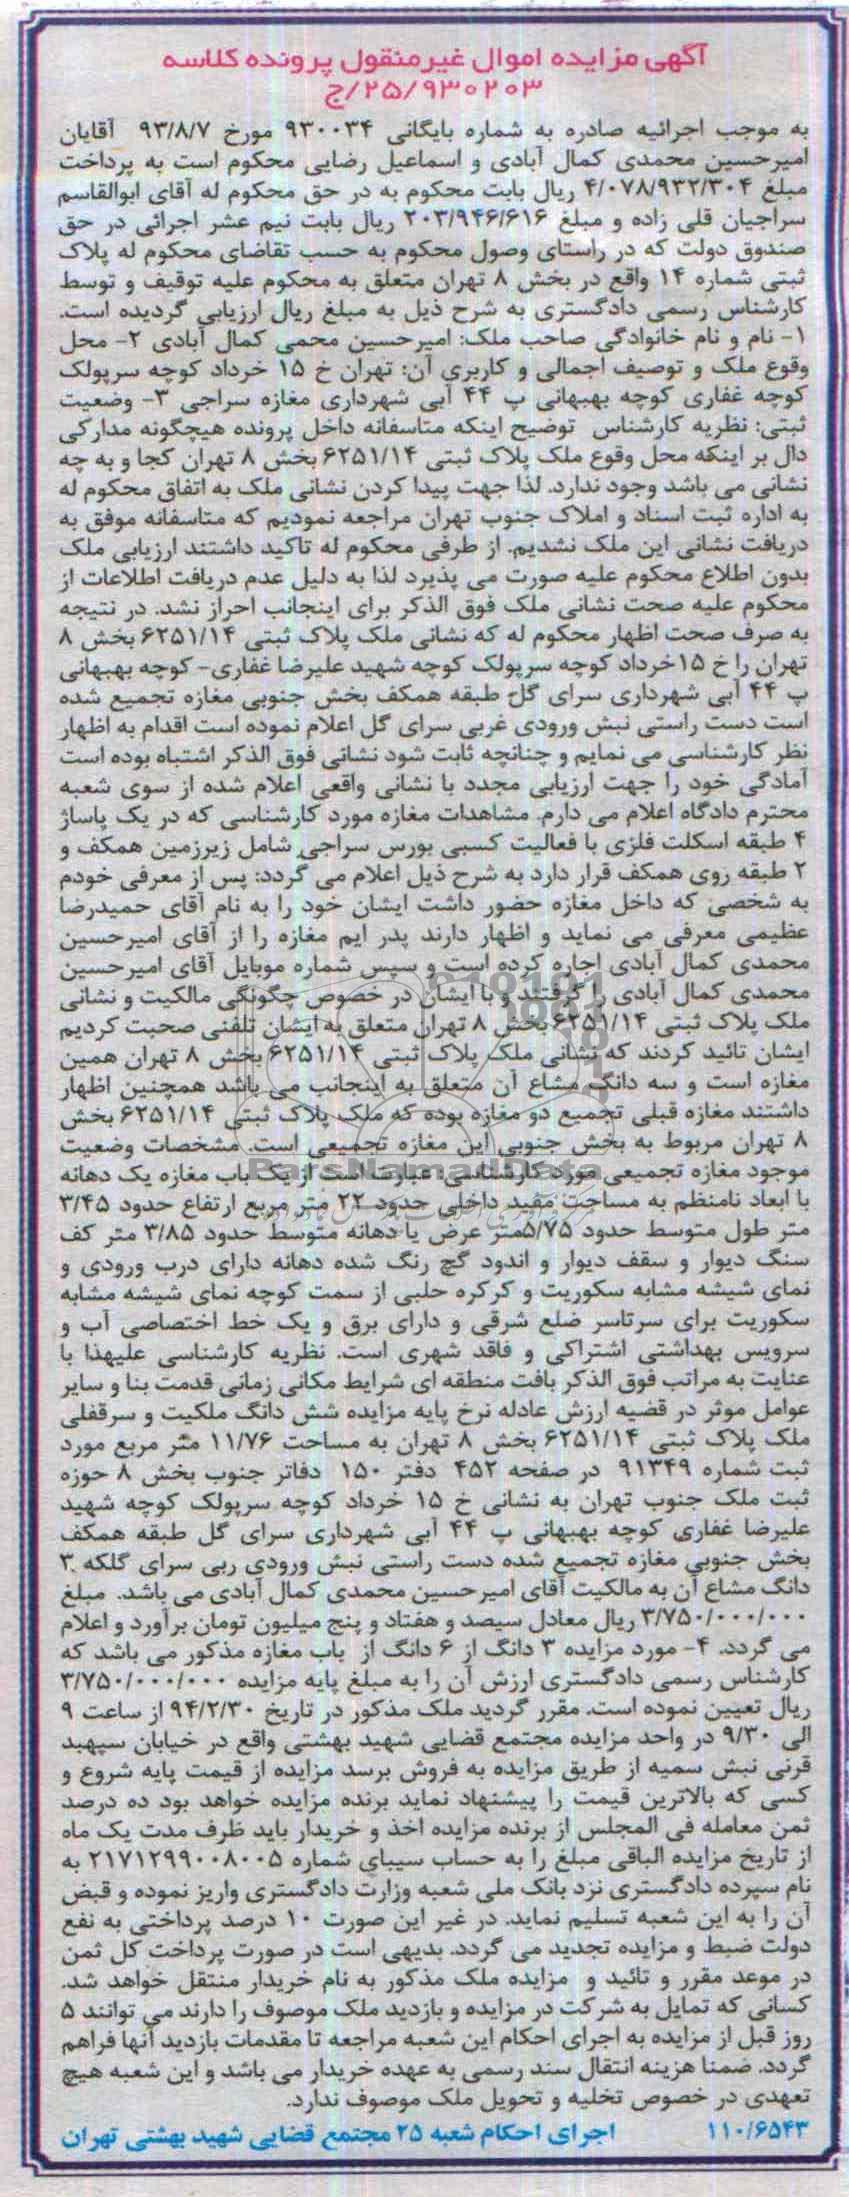 آگهی مزایده اموال غیرمنقول پرونده کلاسه
۲۵/۹۳۰۲۰۳/ج
به موجب اجرائیه صادره به شماره بایگانی ۹۳۰۰۳۴ مورخ ۹۳/۸/۷ آقایان
امیرحسین محمدی کمال آبادی و اسماعیل رضایی محکوم است به پرداخت
مبلغ ۴/۰۷۸/۹۳۲/۳۰۴ ریال بابت محکوم به در حق محکوم له آقای ابوالقاسم
سراجیان قلی زاده و مبلغ ۲۰۳/۹۴۶/۶۱۶ ریال بابت نیم عشر اجرائی در حق
صندوق دولت که در راستای وصول محکوم به حسب تقاضای محکوم له پلاک
ثبتی شماره ۱۴ واقع در بخش ۸ تهران متعلق به محکوم علیه توقیف و توسط
کارشناس رسمی دادگستری به شرح ذیل به مبلغ ریال ارزیابی گردیده است.
۱- نام و نام خانوادگی صاحب ملک: امیرحسین محمی کمال آبادی ۲- محل
وقوع ملک و توصیف اجمالی و کاربری آن: تهران خ ۱۵ خرداد کوچه سرپولک
کوچه غفاری کوچه بهبهانی پ ۴۴ آبی شهرداری مغازه سراجی ۳- وضعیت
ثبتی: نظریه کارشناس توضیح اینکه متاسفانه داخل پرونده هیچگونه مدارکی
دال بر اینکه محل وقوع ملک پلاک ثبتی ۶۲۵۱/۱۴ بخش ۸ تهران کجا و به چه
نشانی می باشد وجود ندارد. لذا جهت پیدا کردن نشانی ملک به اتفاق محکوم له
به اداره ثبت اسناد و املاک جنوب تهران مراجعه نمودیم که متاسفانه موفق به
دریافت نشانی این ملک نشدیم. از طرفی محکوم له تاکید داشتند ارزیابی ملک
بدون اطلاع محکوم علیه صورت می پذیرد لذا به دلیل عدم دریافت اطلاعات از
محکوم علیه صحت نشانی ملک فوق الذکر برای اینجانب احراز نشد. در نتیجه
به صرف صحت اظهار محکوم له که نشانی ملک پلاک ثبتی ۶۲۵۱/۱۴ بخش ۸
تهران را خ ۱۵خرداد کوچه سرپولک کوچه شهید علیرضا غفاری- کوچه بهبهانی
پ ۴۴ آبی شهرداری سرای گل طبقه همکف بخش جنوبی مغازه تجمیع شده
است دست راستی نبش ورودی غربی سرای گل اعلام نموده است اقدام به اظهار
نظر کارشناسی می نمایم و چنانچه ثابت شود نشانی فوق الذکر اشتباه بوده است
آمادگی خود را جهت ارزیابی مجدد با نشانی واقعی اعلام شده از سوی شعبه
محترم دادگاه اعلام می دارم. مشاهدات مغازه مورد کارشناسی که در یک پاساژ
۴ طبقه اسکلت فلزی با فعالیت کسبی بورس سراجی شامل زیرزمین همکف و
۲ طبقه روی همکف قرار دارد به شرح ذیل اعلام می گردد: پس از معرفی خودم
به شخصی که داخل مغازه حضور داشت ایشان خود را به نام آقای حمیدرضا
عظیمی معرفی می نماید و اظهار دارند پدر ایم مغازه را از آقای امیرحسین
محمدی کمال آبادی اجاره کرده است و سپس شماره موبایل آقای امیرحسین
محمدی کمال آبادی را گرفتند و با ایشان در خصوص چگونگی مالکیت و نشانی
ملک پلاک ثبتی ۶۲۵۱/۱۴ بخش ۸ تهران متعلق به ایشان تلفنی صحبت کردیم
ایشان تائید کردند که نشانی ملک پلاک ثبتی ۶۲۵۱/۱۴ بخش ۸ تهران همین
مغازه است و سه دانگ مشاع آن متعلق به اینجانب می باشد همچنین اظهار
داشتند مغازه قبلی تجمیع دو مغازه بوده که ملک پلاک ثبتی ۶۲۵۱/۱۴ بخش
۸ تهران مربوط به بخش جنوبی این مغازه تجمیعی است. مشخصات وضعیت
ParsNamadData
موجود مغازه تجمیعی مورد کارشناسی عبارت است از یک باب مغازه یک دهانه
با ابعاد نامنظم به مساحت مفید داخلی حدود ۲۲ متر مربع ارتفاع حدود ۳/۴۵
متر طول متوسط حدود ۵/۷۵متر عرض یا دهانه متوسط حدود ۳/۸۵ متر کف
سنگ دیوار و سقف دیوار و اندود گچ رنگ شده دهانه دارای درب ورودی و
نمای شیشه مشابه سکوریت و کرکره حلبی از سمت کوچه نمای شیشه مشابه
سکوریت برای سرتاسر ضلع شرقی و دارای برق و یک خط اختصاصی آب و
سرویس بهداشتی اشتراکی و فاقد شهری است. نظریه کارشناسی علیهذا با
عنایت به مراتب فوق الذکر بافت منطقه ای شرایط مکانی زمانی قدمت بنا و سایر
عوامل موثر در قضیه ارزش عادله نرخ پایه مزایده شش دانگ ملکیت و سرقفلی
ملک پلاک ثبتی ۶۲۵۱/۱۴ بخش ۸ تهران به مساحت ۱۱/۷۶ متر مربع مورد
ثبت شماره ۹۱۳۴۹ در صفحه ۴۵۲ دفتر ۱۵۰ دفاتر جنوب بخش ۸ حوزه
ثبت ملک جنوب تهران به نشانی خ ۱۵ خرداد کوچه سرپولک کوچه شهید
علیرضا غفاری کوچه بهبهانی پ ۴۴ آبی شهرداری سرای گل طبقه همکف
بخش جنوبی مغازه تجمیع شده دست راستی نبش ورودی ربی سرای گلکه ۳
دانگ مشاع آن به مالکیت آقای امیرحسین محمدی کمال آبادی می باشد. مبلغ
۳/۷۵۰/۰۰۰/۰۰۰ ریال معادل سیصد و هفتاد و پنج میلیون تومان برآورد و اعلام
می گردد. ۴- مورد مزایده ۳ دانگ از ۶ دانگ از باب مغازه مذکور می باشد که
کارشناس رسمی دادگستری ارزش آن را به مبلغ پایه مزایده ۳/۷۵۰/۰۰۰/۰۰۰
ریال تعیین نموده است. مقرر گردید ملک مذکور در تاریخ ۹۴/۲/۳۰ از ساعت ۹
الی ۹/۳۰ در واحد مزایده مجتمع قضایی شهید بهشتی واقع در خیابان سپهبد
قرنی نبش سمیه از طریق مزایده به فروش برسد مزایده از قیمت پایه شروع و
کسی که بالاترین قیمت را پیشنهاد نماید برنده مزایده خواهد بود ده درصد
ثمن معامله فی المجلس از برنده مزایده اخذ و خریدار باید ظرف مدت یک ماه
از تاریخ مزایده الباقی مبلغ را به حساب سیبای شماره ۲۱۷۱۲۹۹۰۰۸۰۰۵ به
نام سپرده دادگستری نزد بانک ملی شعبه وزارت دادگستری واریز نموده و قبض
آن را به این شعبه تسلیم نماید. در غیر این صورت ۱۰ درصد پرداختی به نفع
دولت ضبط و مزایده تجدید می گردد. بدیهی است در صورت پرداخت کل ثمن
در موعد مقرر و تائید و مزایده ملک مذکور به نام خریدار منتقل خواهد شد.
کسانی که تمایل به شرکت در مزایده و بازدید ملک موصوف را دارند می توانند ۵
روز قبل از مزایده به اجرای احکام این شعبه مراجعه تا مقدمات بازدید آنها فراهم
گردد. ضمنا هزینه انتقال سند رسمی به عهده خریدار می باشد و این شعبه هیچ
تعهدی در خصوص تخلیه و تحویل ملک موصوف ندارد.
۱۱۰/۶۵۴۳ اجرای احکام شعبه ۲۵ مجتمع قضایی شهید بهشتی تهران